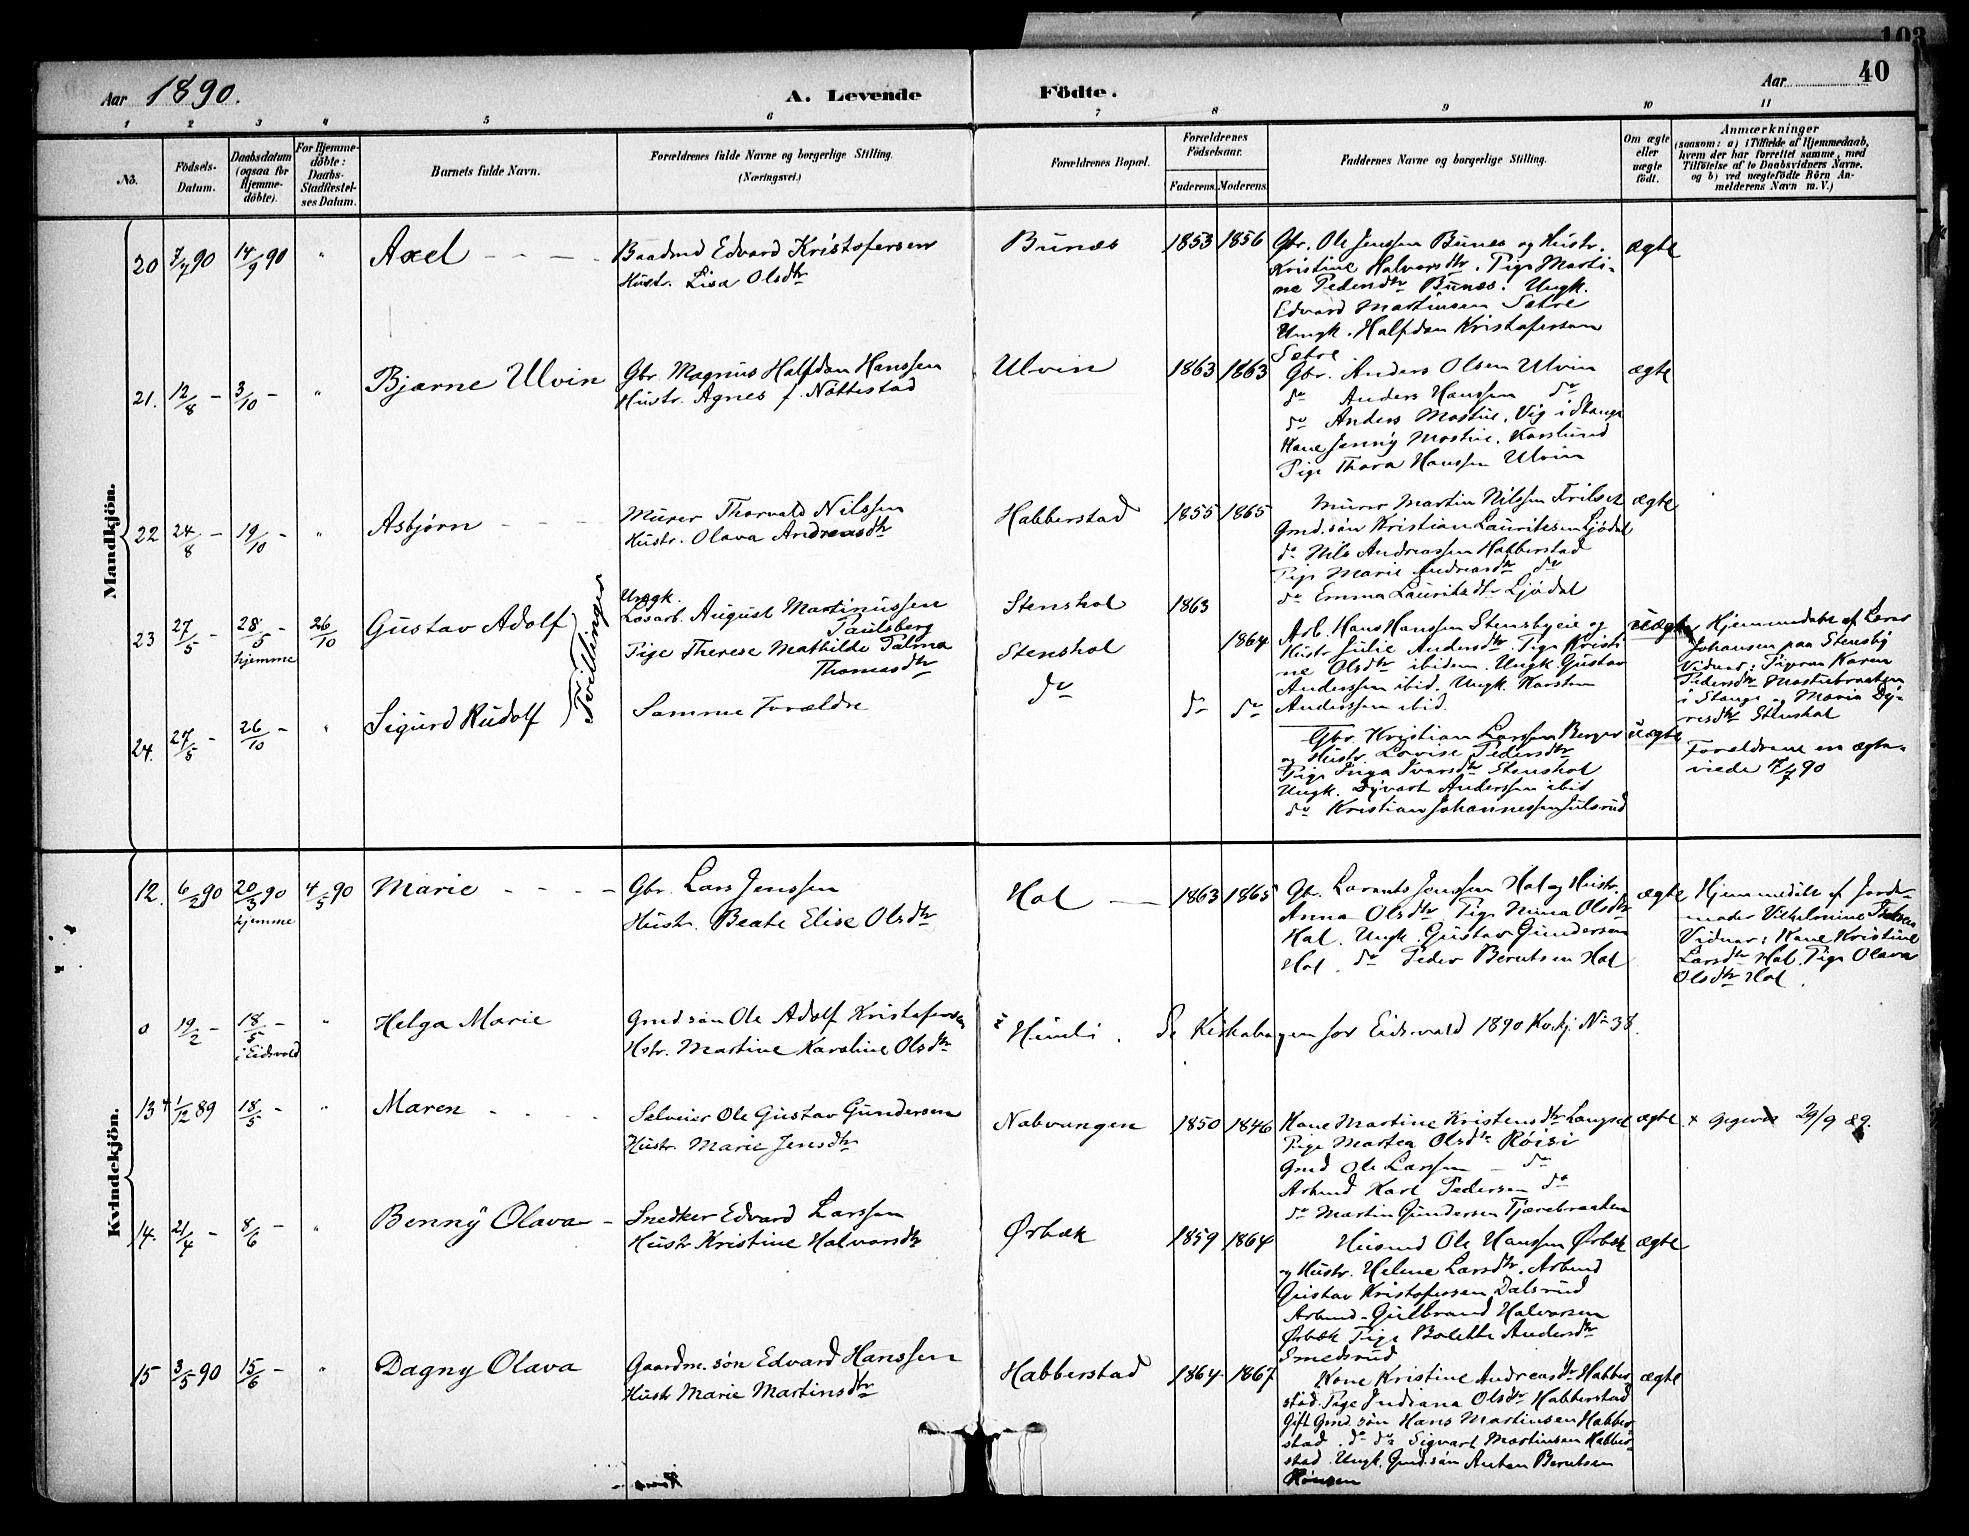 103
40
Aar 1890.
A. Levende
Födte.
Aar
1
2
3
4
5
6
7
8
9
10
11
No.
Födsels-
Datum.
Daabsdatum
(ogsaa for
Hjemme-
döbte).
For Hjemme-
döbte:
Daabs-
Stadfæstel-
ses Datum.
Barnets fulde Navn.
Forældrenes fulde Navne og borgerlige Stilling.
(Næringsvei.)
Forældrenes Bopæl.
Forældrenes
Födselsaar.
Faderens.
Moderens.
Faddernes Navne og borgerlige Stilling.
Om ægte
eller
uægte
födt.
Anmærkninger
(saasom: a) i Tilfælde af Hjemmedaab,
hvem der har forrettet samme, med
Tilföielse af to Daabsvidners Navne.
og b) ved uægtefödte Börn An-
melderens Navn m. V.)
Mandkjön.
20 7/7 90 14/9 90 " Axel
Baadmd Edvard Kristofersen
Hustr. Lisa Olsdtr
Bunæs 1853 1856
Gbr. Ole Jenssen Bunes og Hustr.
Kristine Halvorsdtr. Pige Marti-
ne Pedersdtr Bunæs. Ungk.
Edvard Martinsen Sætre
Ungk. Halfdan Kristofersen
Sætre
ægte
21. 12/8 - 3/10 - " Bjarne Ulvin
Gbr. Magnus Halfdan Hanssen
Hustr. Agnes f. Nøttestad
Ulvin 1863 1863
Gbr. Anders Olsen Ulvin
do Anders Hanssen do
do Anders Mostue, Vig i Stange
Kone Jenny Mostue, Korslund
Pige Thora Hanssen Ulvin
ægte
22 24/8 - 19/10 - " Asbjørn
Murer Thorvald Nilssen
Hustr. Olava Andreasdtr
Habberstad 1855 1865
Murer Martin Nilssen Frilset
Gmd.søn Kristian Lauritssen Ljødal
do Nils Andreassen Habberstad
Pige Marie Andreasdtr do
do Emma Lauritsdtr Ljødal
ægte
23 27/5 - 28/5 - hjemme 26/10 Gustav Adolf
Tvillinger
Ungk.
Løsarb. August Martinussen
Paulsberg
Pige Therese Mathilde Palma
Thomasdtr
Stenshol 1863
Stenshol 1864
Arb. Hans Hanssen Stensbyeie og
Hustr Julie Andersdtr. Pige Kristi
ne Olsdtr ibidem. Ungk. Gustav
Anderssen ibid. Ungk. Karsten
Anderssen ibid.
uægte
Hjemmedøbt af Lars
Johansen paa Stensby
Vidner: Pigerne Karen
Pedersdtr Mostuebraaten
i Stange, Maria Dy-
resdtr Stenshol
24. 27/5 - 26/10 - " Sigurd Rudolf
Samme Forældre
do do do
Gbr. Kristian Larssen Berger
og Hustr. Lovise Pedersdtr
Pige Inga Ivarsdtr Stenshol
Ungk. Dyvart Anderssen ibid
do Kristian Johannessen Julsrud
uægte
Forældrene ere ægte-
viede 7/7 90
Kvindekjön.
12. 6/2 90 20/3 90 hjemme 4/5 90 Marie
Gbr. Lars Jenssen
Hustr. Beate Elise Olsdtr
Hol 1863 1865
Gbr. Lorents Jenssen Hol og Hustr.
Anna Olsdtr. Pige Nina Olsdtr
Hol. Ungk. Gustav Gundersen
Hol. do Peder Berntsen Hol
ægte
Hjemmedøbt af Jorde-
moder Vilhelmine
Vidner: Kone Kristine
Larsdtr Hol. Pige Olava
Olsdtr Hol.
0 19/2 - 18/5 - i Eidsvold " Helga Marie
Gmdsøn Ole Adolf Kristofersen
Hstr. Martine Karoline Olsdtr
Himli. Se Kirkebogen for Eidsvold 1890 Kvkj. No 38.
13 + 1/12 89 18/5 - " Maren
Selveier Ole Gustav Gundersen
Hustr. Marie Jensdtr
Nabvangen 1850 1846
Kone Martine Kristensdtr Langset
Pige Martea Olsdtr Røisi
Gmd Ole Larssen do
Arbmd Karl Pedersen do
do Martin Gundersen Tjærebraaten
ægte
+ 29/9 89.
14. 21/4 - 8/6 - " Benny Olava
Snedker Edvard Larssen
Hustr Kristine Halvorsdtr
Ørbæk 1859 1864
Husmd Ole Hanssen Ørbæk
og Hustr. Helene Larsdtr. Arbmd
Gustav Kristofersen Dalsrud
Arbmd. Gulbrand Halvorsen
Ørbæk Pige Bolette Andersdtr
Smedsrud
ægte
15 3/5 90 15/6 - " Dagny Olava
Gaardm.søn Edvard Hanssen
Hustr Marie Martinsdtr
Habberstad 1864 1867
Kone Kristine Andreasdtr Habber-
stad. Pige Indiana Olsdtr Habberstad
Gift Gmd.søn Hans Martinsen Habber
stad. do do Sigvart Martinsen Habber-
stad. Ungk. Gmd.søn Anton Berntsen
Hønsen
ægte